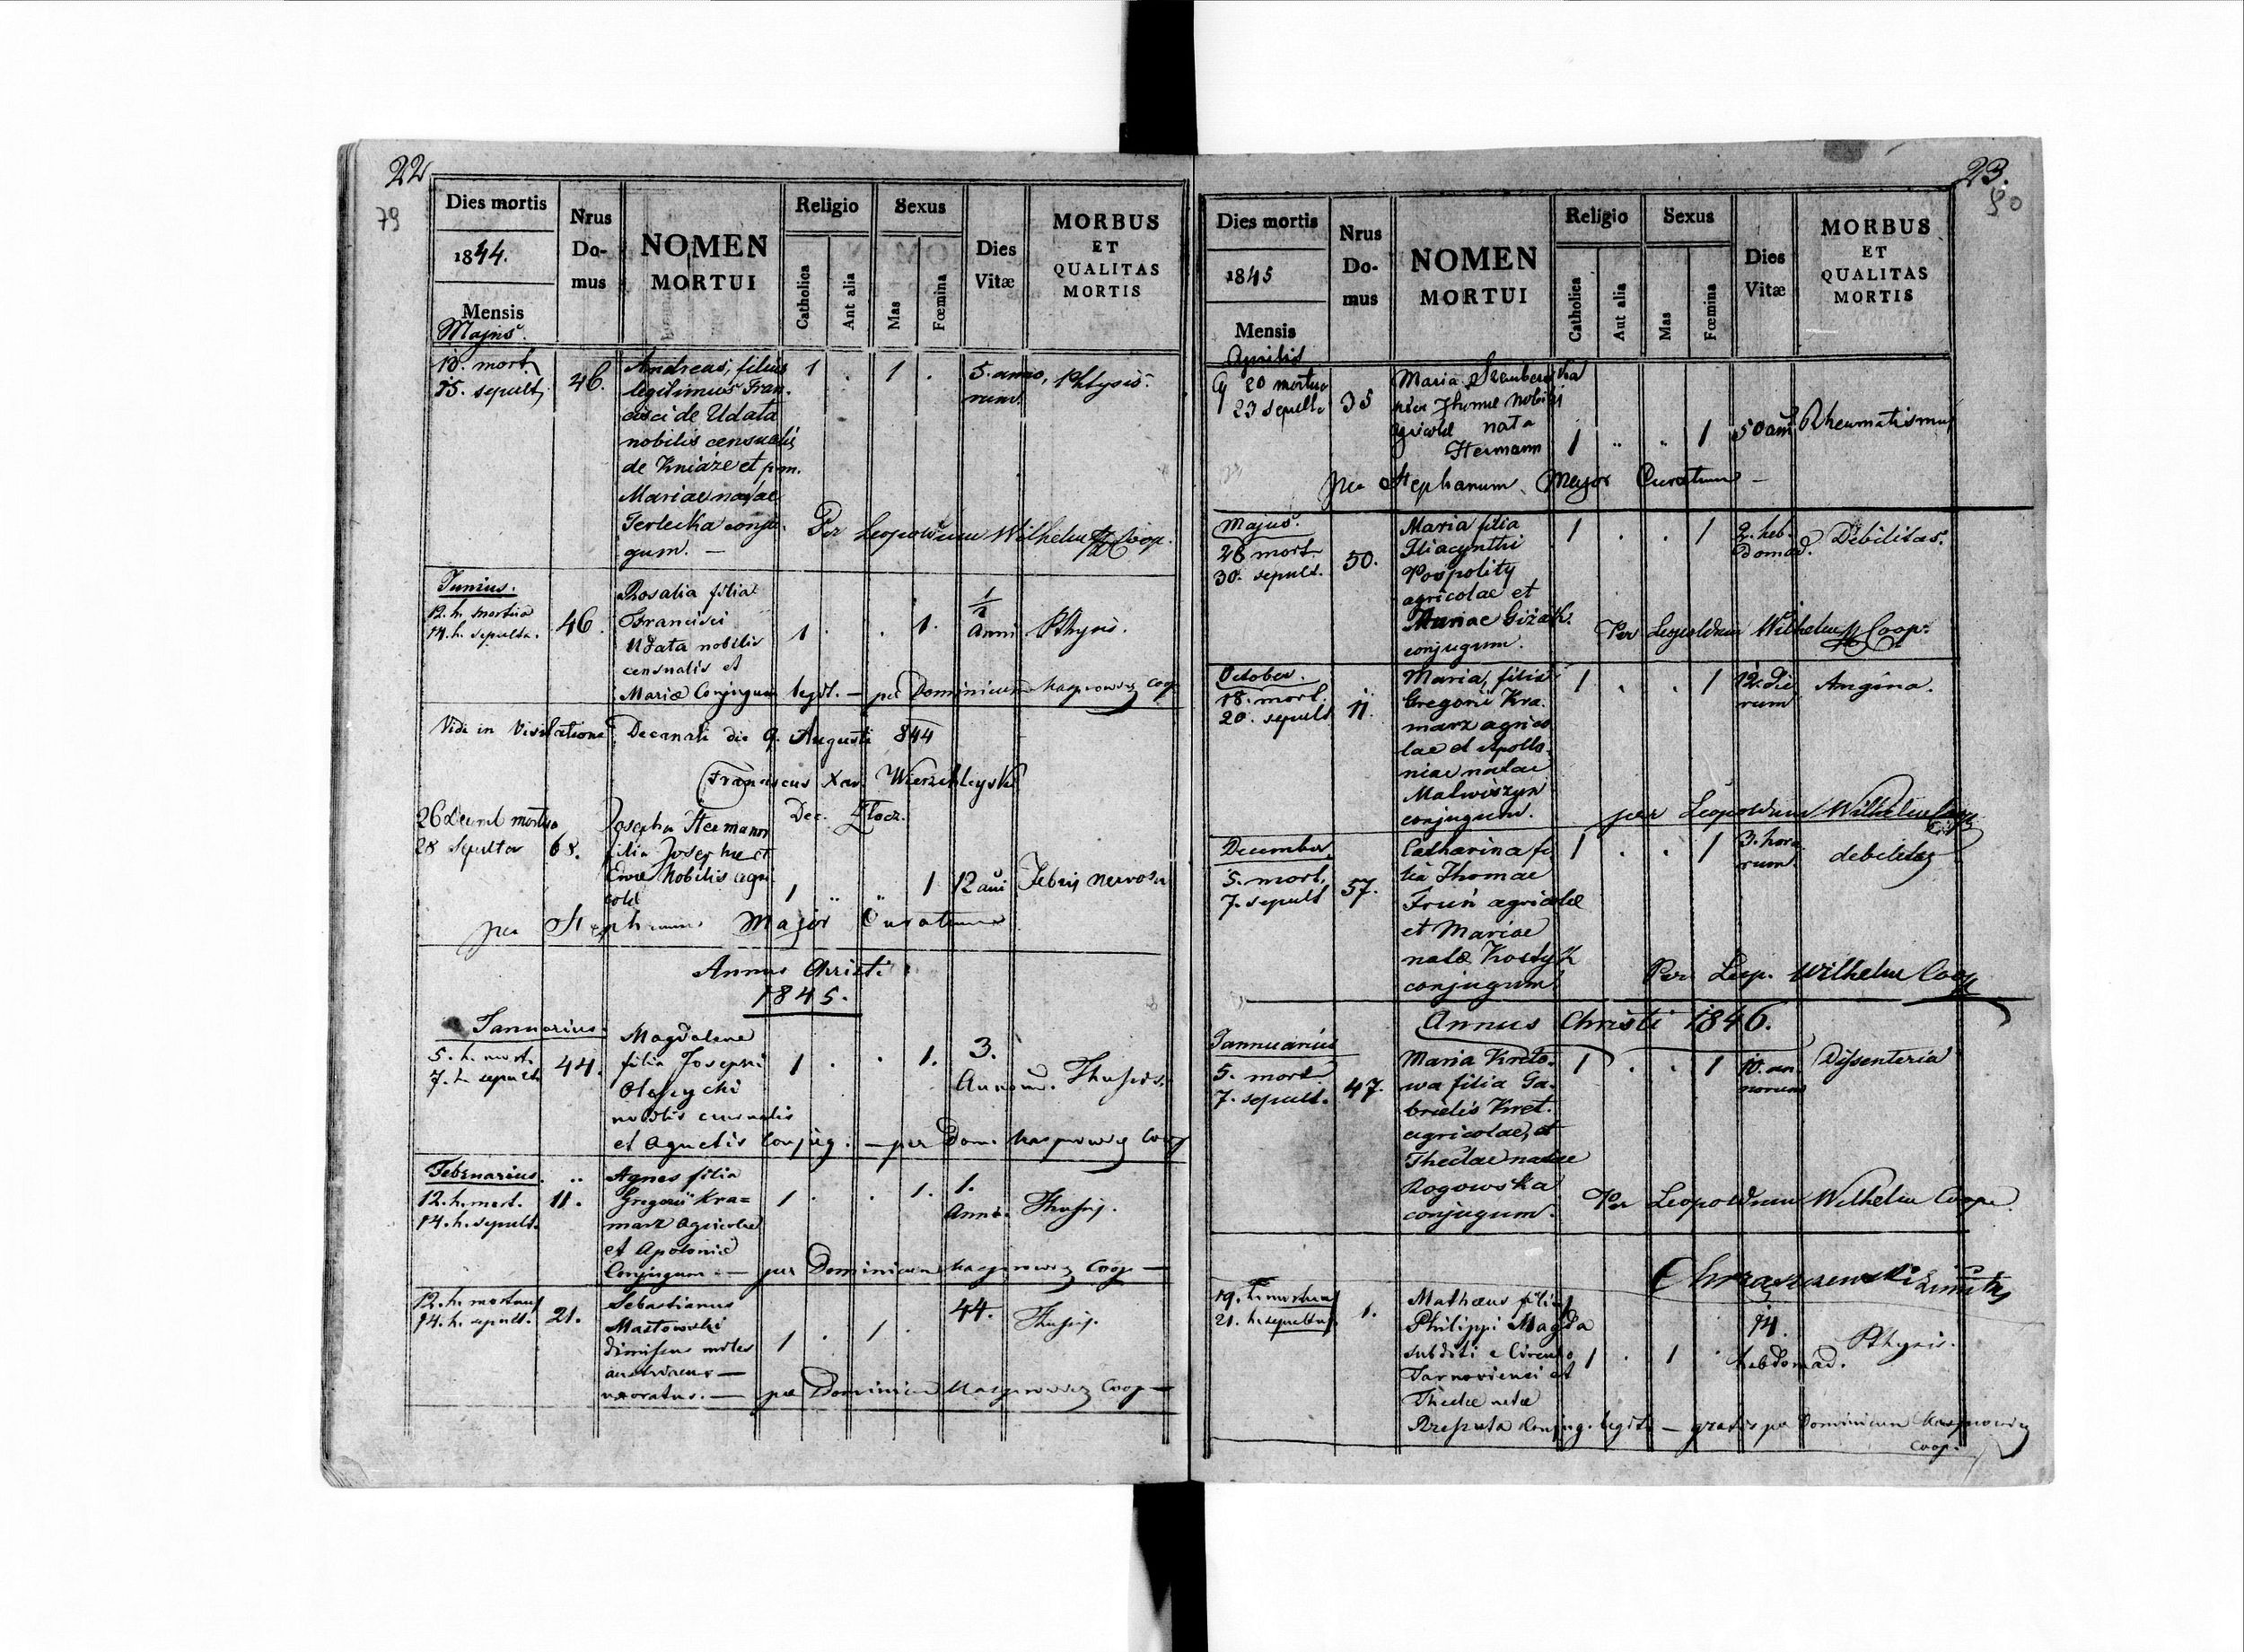 22
79
Dies mortis
1844.
Mensis
Majus.
Nrus Do- mus
NOMEN MORTUI
Religio
Catholica
Aut alia
Sexus
Mas
Fœmina
Dies Vitæ
MORBUS ET QUALITAS MORTIS
13. mort.
15. sepult.
46.
Andreas, filius
legitimus Fran-
cisci de Udata
nobilis censualis
de Kniaże et
Mariae natae
Terlecka conju-
gum. —
1 . 1 .
5. anno,
rum.
Phtysis.
Per Leopoldum Wilhelm Coop.
Junius.
12. h. mortua
14. h. sepulta.
46.
Rosalia filia
Francisci
Udata nobilis
censualis et
Mariæ Conjugum legit. — per Dominicum Kasprowicz Coop
1 . . 1.
1/2
Anni
Pthysis.
Vidi in Visitatione Decanali die 9. Augusti 844
Franciscus Xav. Wierzchleyski
Dec. Złocz.
26 Decemb mortua
28 sepulta
68.
Josepha Hermann
filia Josephi et
Evæ Nobilis agri
colæ
1 " " 1
12 anni
Febris nervosa
per Stephanum Major Curatum
Annus Christi
1845.
Januarius.
5. h. mort.
7. h. sepult.
44.
Magdalena
filia Josephi
nobilis censualis
et Agnetis Conjug. — per Dom. Kasprowicz Coop
1 . . 1.
3.
Annorum.
Februarius.
12. h. mort.
14. h. sepult.
11.
Agnes filia
Gregorii Kra=
marz Agricolae
et Apoloniæ
Conjugum. — per Dominicum Kasprowicz Coop —
1 . . 1.
1.
Anni.
12. h. mortuus
14. h. sepult.
21.
Sebastianus
Masłowski
dimissus miles
austriacus —
uxoratus. — per Dominicum Kasprowicz Coop —
1 . 1 .
44.
23.
80
Dies mortis
1845
Mensis
Aprilis
Nrus Do- mus
NOMEN MORTUI
Religio
Catholica
Aut alia
Sexus
Mas
Fœmina
Dies Vitæ
MORBUS ET QUALITAS MORTIS
20 mortua
23 sepulta
35
Maria
Thomæ Nobilis
agricolæ nata
Hermann
1 " " 1
50 ann
Rheumatismus
per Stephanum Major Curatum —
Majus.
28 mort.
30. sepult.
50.
Maria filia
Hiacynthi
Pospolity
agricolae et
Mariae
conjugum.
1 . . 1
2. heb-
domad.
Debilitas.
Per Leopoldum Wilhelm Coop.
October.
18. mort.
20. sepult
11.
Maria, filia
Gregorii Kra-
marz agrico
lae et Apollo-
niae natae
Malwiszyn
conjugum.
1 . . 1
12. die
rum
Angina.
per Leopoldum Wilhelm Coop
December.
5. mort.
7. sepult
57.
Catharina fi
lia Thomae
agricolæ
et Mariae
natæ Kostyk
conjugum
1 . . 1
3. hora
rum.
debilitas
Per Leop. Wilhelm Coop
Annus Christi 1846.
Januarius
5. mort.
7. sepult.
47.
Maria Kreto-
wa filia Ga-
brielis Kret.
agricolae, et
Theclae natae
Rogowska
conjugum.
1 . . 1
10. an
norum
Dissenteria
Per Leopoldum Wilhelm Coop.
19. h. mortuus
21. h. sepultus
1.
Mathæus filius
Philippi Magda
subditi e Circulo
Tarnoviensi et
Theclæ natæ
conjug. legit. — gratis per Dominicum Kasprowicz
Coop.
1 . 1 .
14.
hebdomad.
Pthysis.